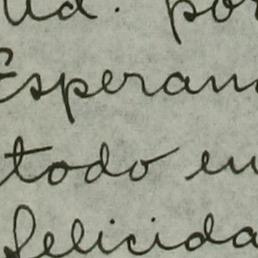 Ud. por
Esperan
todo en
felicida